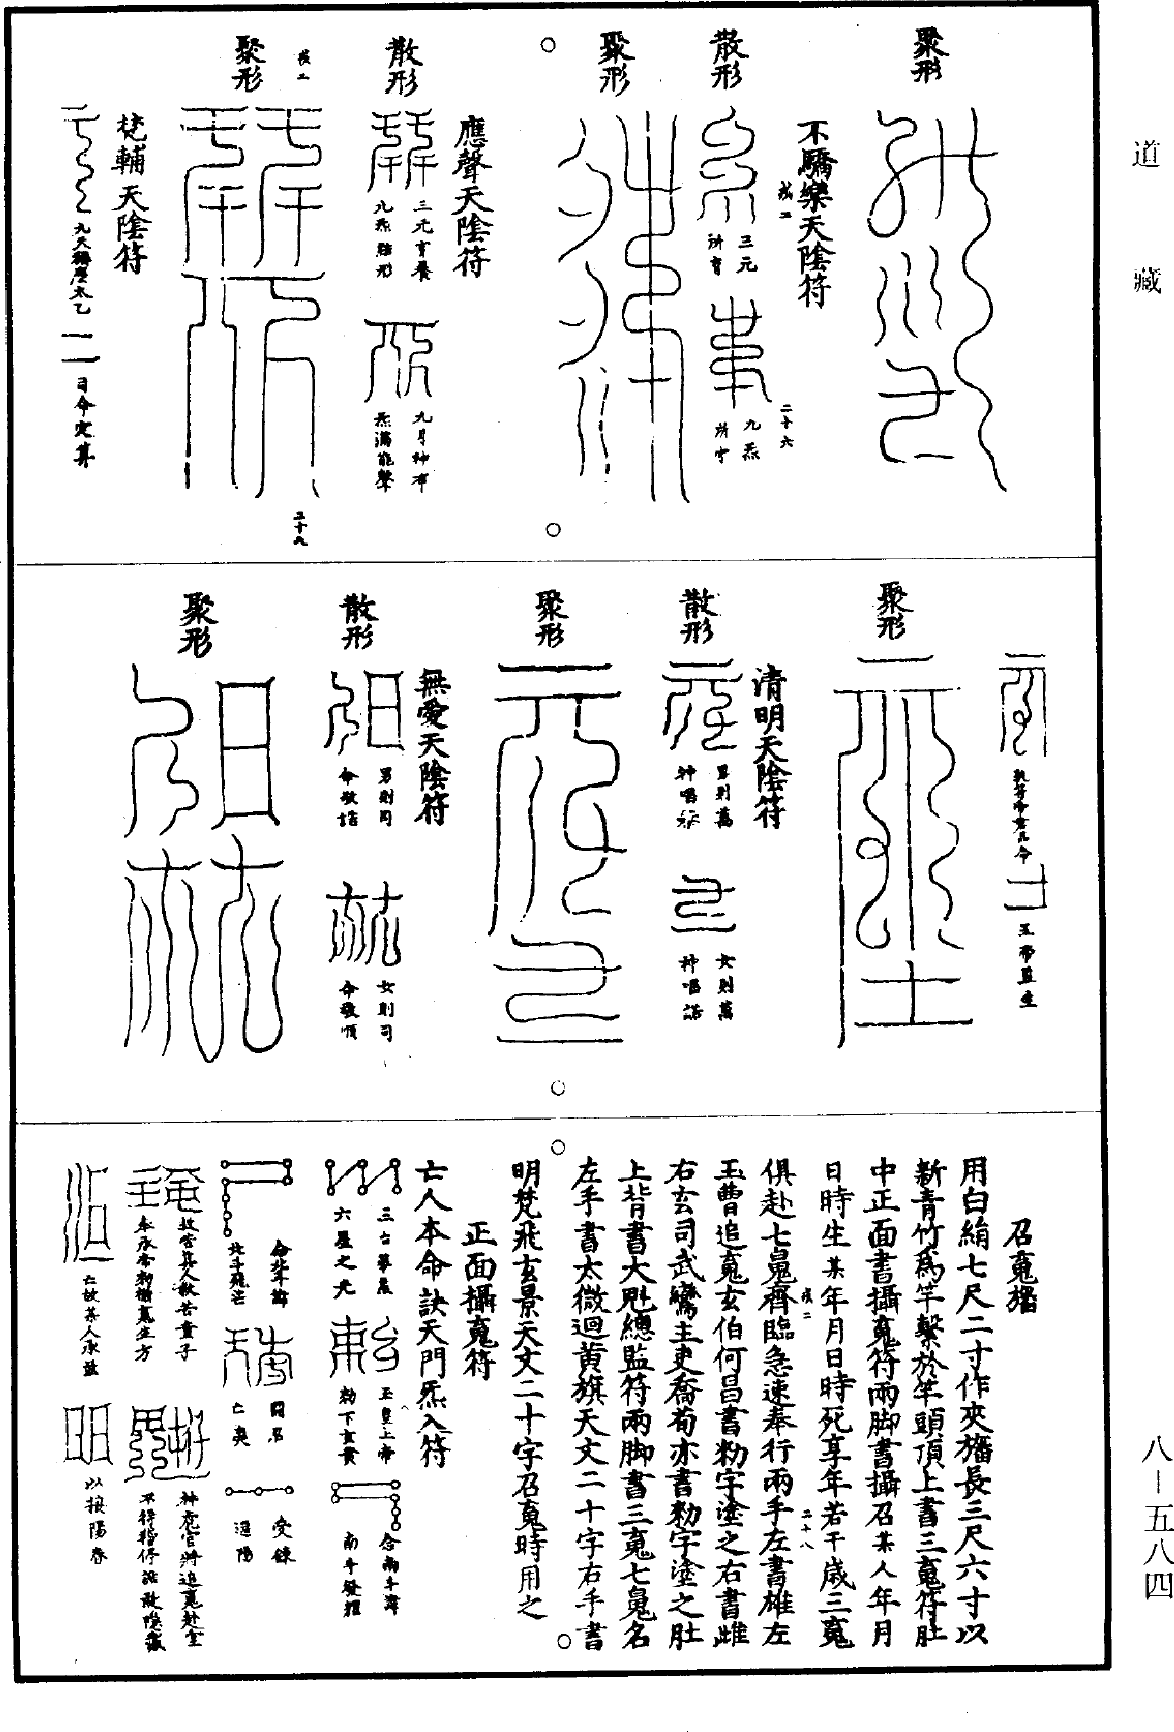 道藏
八—五八四
聚形
不驕樂天陰符
散形
三元
九炁
二十六
聚形
應聲天陰符
散形
三元育養
九炁結形
九月神布
炁滿能聲
聚形
二十九
梵輔天陰符
九天稱慶太乙
司命定算
五帝監生
聚形
清明天陰符
散形
男則萬
神唱恭
女則萬
神唱諾
聚形
無愛天陰符
散形
男則司
命敬諾
女則司
命敬順
聚形
召䰟旛
用白絹七尺二寸作夾旛長三尺六寸以
新青竹爲竿繫於竿頭頂上書三䰟符肚
中正面書攝䰟符兩脚書攝召某人年月
日時生某年月日時死享年若干歲三䰟
二十八
俱赴七䰟齊臨急速奉行兩手左書雄左
玉曹追䰟玄伯何昌書勑字塗之右書雌
右玄司武鸞主吏喬荀亦書勑字塗之肚
上背書大魁總監符兩脚書三䰟七䰟名
左手書太微迴黄旗天文二十字右手書
明梵飛玄景天文二十字召䰟時用之
正面攝䰟符
亡人本命訣天門炁入符
三台華蓋
六星之光
玉皇上帝
勑下玄貴
念南斗諱
南斗發輝
念北斗諱
北斗飛芒
開君
亡爽
受鍊
迴陽
救苦真人救苦童子
奉承帝勑攝䰟生方
神虎官將追䰟赴壇
不得稽停詎敢隱藏
亡故某人承兹
以接陽春